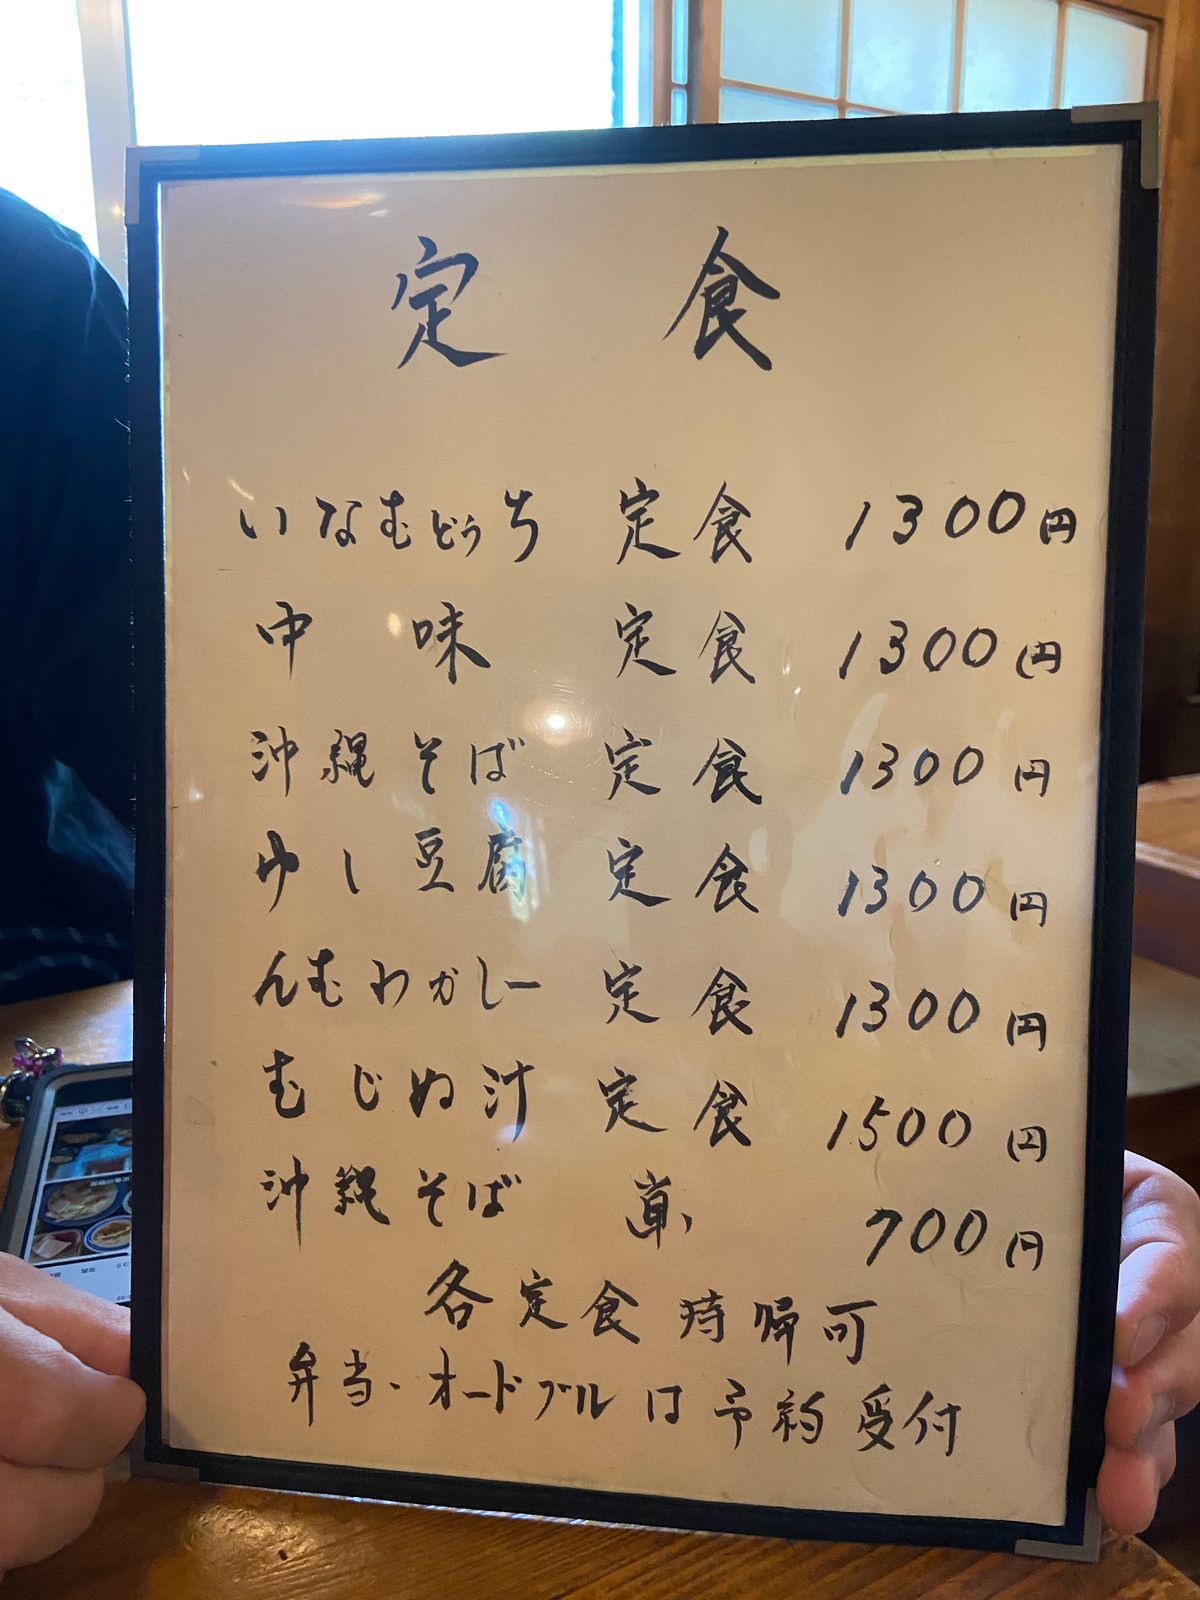 定食
いなむどぅち 定食 1300円
中味 定食 1300円
沖縄そば 定食 1300円
ゆし豆腐 定食 1300円
んむわかしー 定食 1300円
むじぬ汁 定食 1500円
沖縄そば 単 700円
各定食 持帰可
弁当・オードブルは予約受付